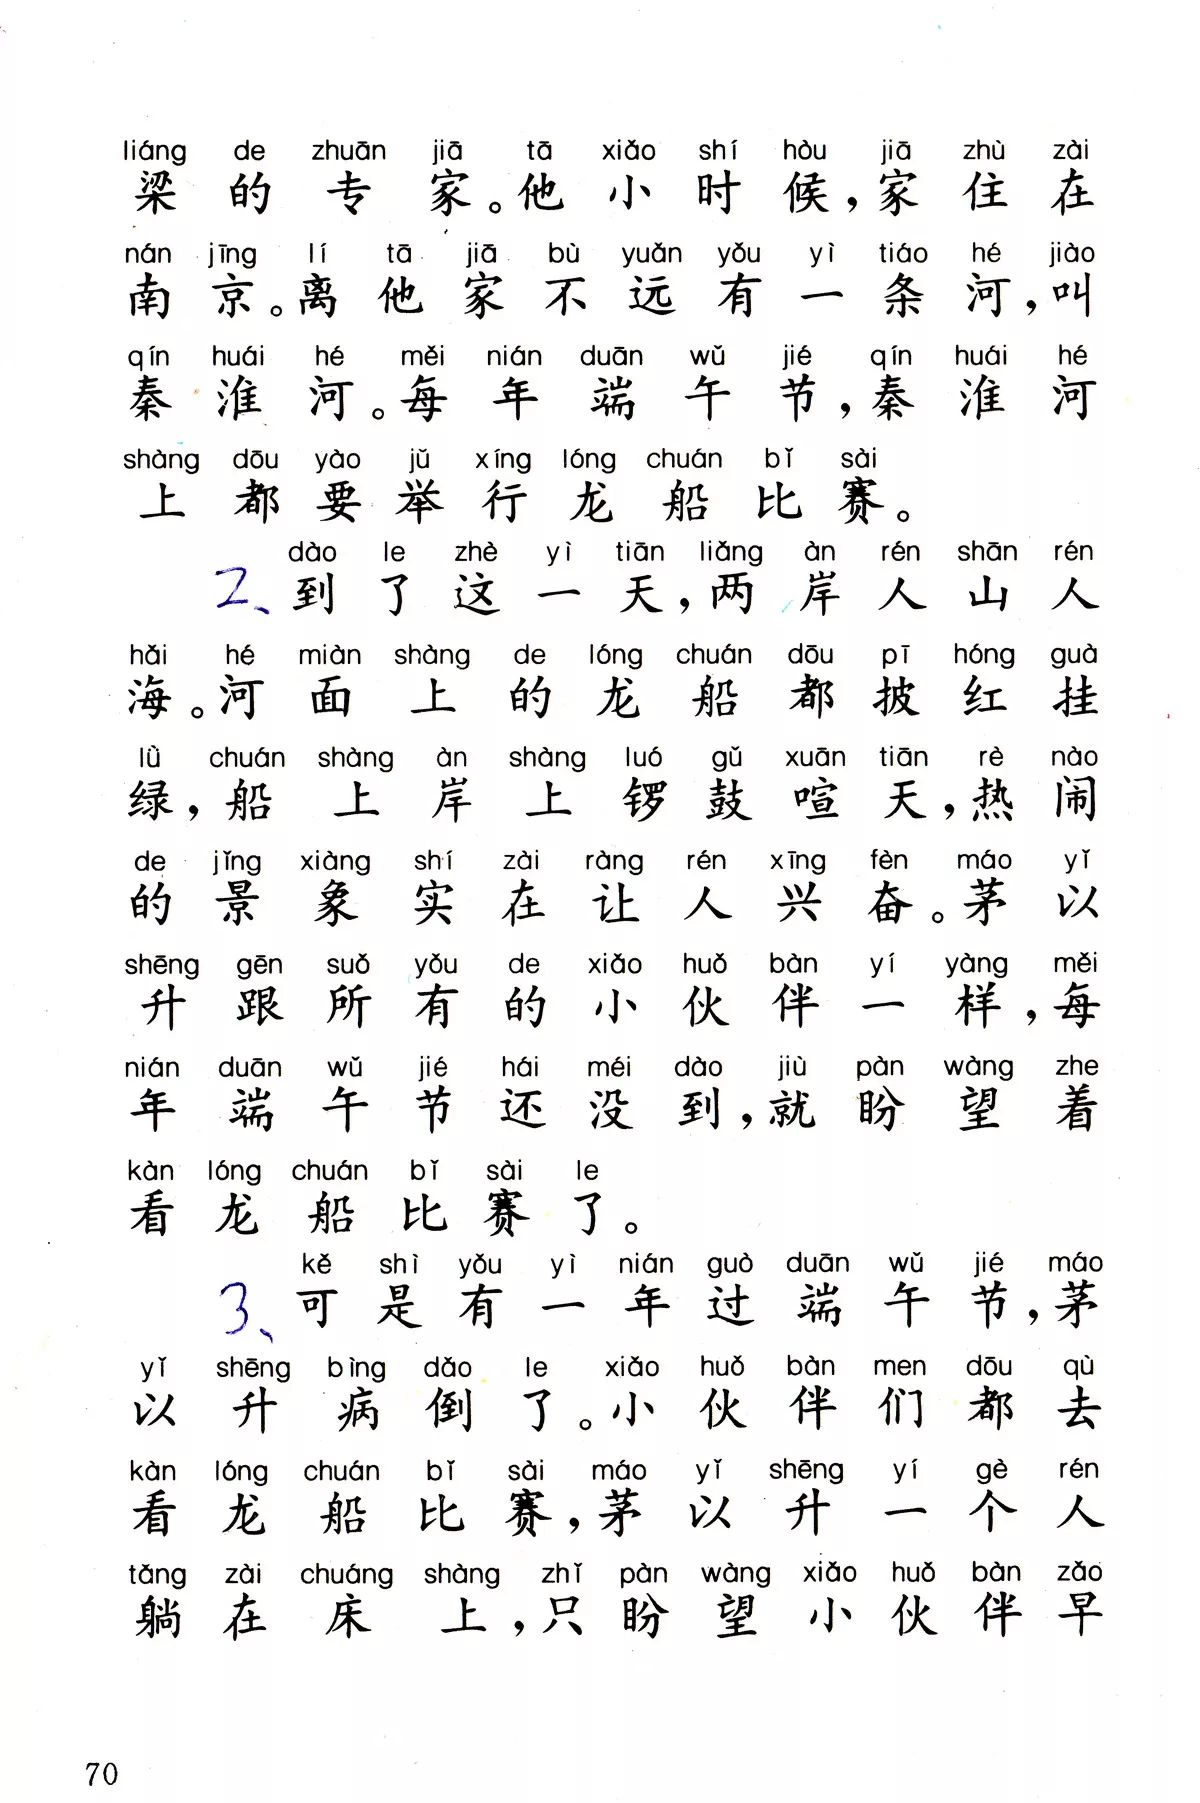 liáng de zhuān jiā tā xiǎo shí hòu jiā zhù zài
梁的专家。他小时候，家住在
nán jīng lí tā jiā bù yuǎn yǒu yì tiáo hé jiào
南京。离他家不远有一条河，叫
qín huái hé měi nián duān wǔ jié qín huái hé
秦淮河。每年端午节，秦淮河
shàng dōu yào jǔ xíng lóng chuán bǐ sài
上都要举行龙船比赛。
dào le zhè yì tiān liǎng àn rén shān rén
2、到了这一天，两岸人山人
hǎi hé miàn shàng de lóng chuán dōu pī hóng guà
海。河面上的龙船都披红挂
lǜ chuán shàng àn shàng luó gǔ xuān tiān rè nào
绿，船上岸上锣鼓喧天，热闹
de jǐng xiàng shí zài ràng rén xīng fèn máo yǐ
的景象实在让人兴奋。茅以
shēng gēn suǒ yǒu de xiǎo huǒ bàn yí yàng měi
升跟所有的小伙伴一样，每
nián duān wǔ jié hái méi dào jiù pàn wàng zhe
年端午节还没到，就盼望着
kàn lóng chuán bǐ sài le
看龙船比赛了。
kě shì yǒu yì nián guò duān wǔ jié máo
3、可是有一年过端午节，茅
yǐ shēng bìng dǎo le xiǎo huǒ bàn men dōu qù
以升病倒了。小伙伴们都去
kàn lóng chuán bǐ sài máo yǐ shēng yí gè rén
看龙船比赛，茅以升一个人
tǎng zài chuáng shàng zhǐ pàn wàng xiǎo huǒ bàn zǎo
躺在床上，只盼望小伙伴早
70